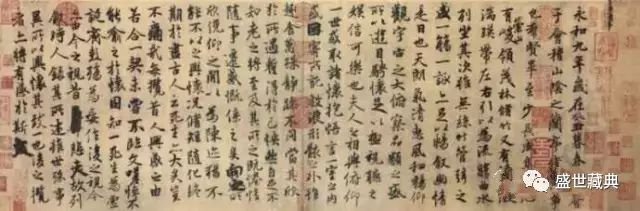 永和九年歲在癸丑暮春之初會
于會稽山陰之蘭亭脩禊事
也群賢畢至少長咸集此地
有崇山峻領茂林脩竹又有清流激
湍暎帶左右引以為流觴曲水
列坐其次雖無絲竹管弦之
盛一觴一詠亦足以暢敘幽情
是日也天朗氣清惠風和暢仰
觀宇宙之大俯察品類之盛
所以遊目騁懷足以極視聽之
娛信可樂也夫人之相與俯仰
一世或取諸懷抱悟言一室之內
或因寄所託放浪形骸之外雖
趣舍萬殊靜躁不同當其欣
於所遇蹔得於己怏然自足不
知老之將至及其所之既惓情
隨事遷感慨係之矣向之所
欣俛仰之閒以為陳迹猶不
能不以之興懷況脩短隨化終
期於盡古人云死生亦大矣豈
不痛哉每攬昔人興感之由
若合一契未嘗不臨文嗟悼不
能喻之於懷固知一死生為虛
誕齊彭殤為妄作後之視今
亦由今之視昔悲夫故列
敘時人錄其所述雖世殊事
異所以興懷其致一也後之攬
者亦將有感於斯文
盛世藏典